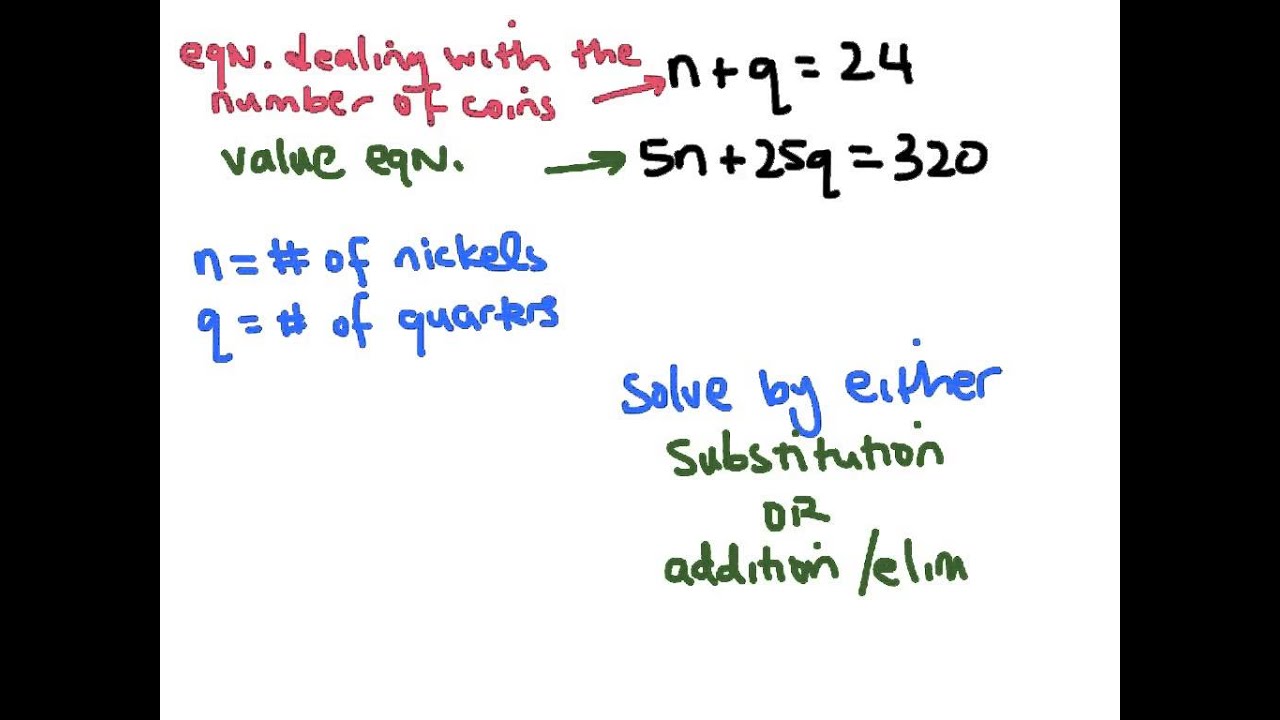 eqn. dealing with the
number of coins
n+q=24
value eqn.
5n+25q=320
n=# of nickels
q=# of quarters
solve by either
substitution
OR
addition/elim